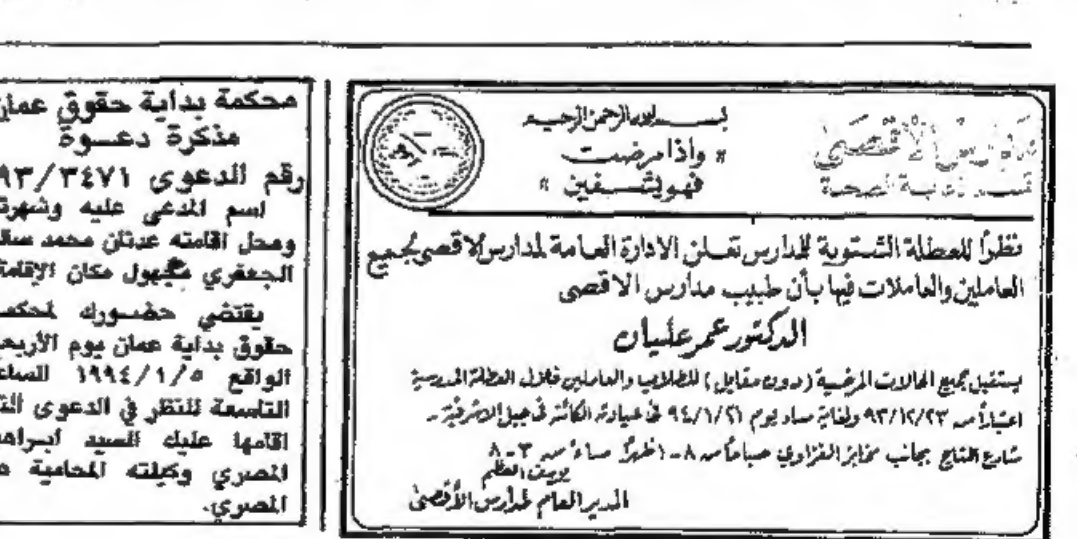 مدارس الأقصى
بسم الله الرحمن الرحيم
« واذا مرضت
فهو يشفين »
نظرًا للعطلة الشتوية للمدارس تعلن الادارة العامة لمدارس الاقصى لجميع
العاملين والعاملات فيها بأن طبيب مدارس الاقصى
الدكتور عمر عليان
يستقبل جميع الحالات المرضية (دون مقابل) للطلاب والعاملين خلال العطلة المدرسية
اعتبارًا من ٩٣/١٢/٢٣ ولغاية مساء يوم ٩٤/١/٢١ في عيادته الكائنة في جبل الاشرفية -
شارع التاج بجانب مخابز الغزاوي صباحًا من ٨-١ ظهرًا مساءً من ٣-٨
يوسف العظم
المدير العام لمدارس الأقصى
محكمة بداية حقوق عمان
مذكرة دعوة
رقم الدعوى ٩٣/٣٤٧١
اسم المدعى عليه وشهرته
ومحل اقامته عدنان محمد
الجعفري مجهول مكان الإقامة
يقتضي حضورك
حقوق بداية عمان يوم الأربعاء
الواقع ١٩٩٤/١/٥ الساعة
التاسعة للنظر في الدعوى
اقامها عليك السيد
المصري وكيلته المحامية
المصري.